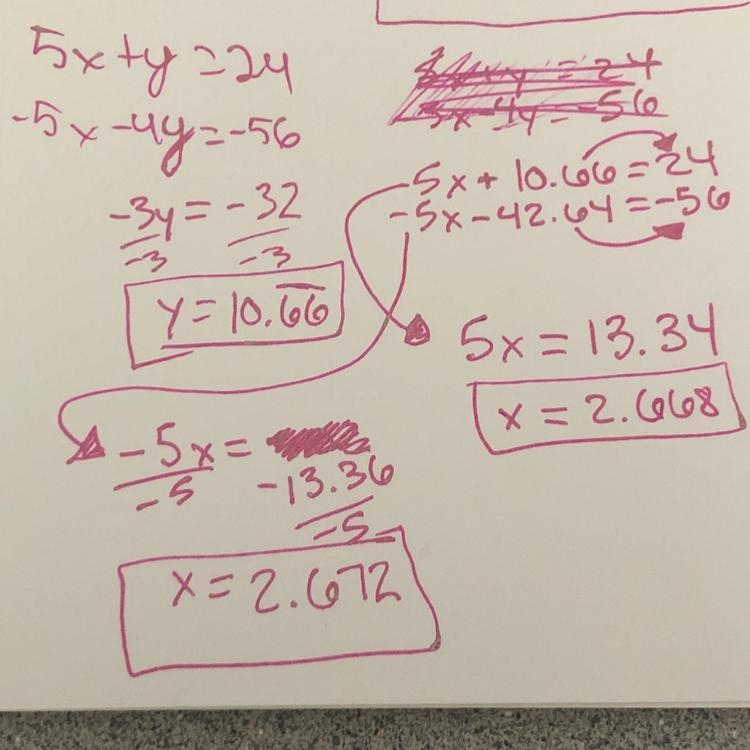 5x+y=24
-5x-4y=-56
-3y = -32
-3 -3
y = 10.6̅6̅
5x+y=24
5x-4y=-56
5x + 10.66 = 24
-5x - 42.64 = -56
5x = 13.34
x = 2.668
-5x = -13.36
-5 -5
x = 2.672